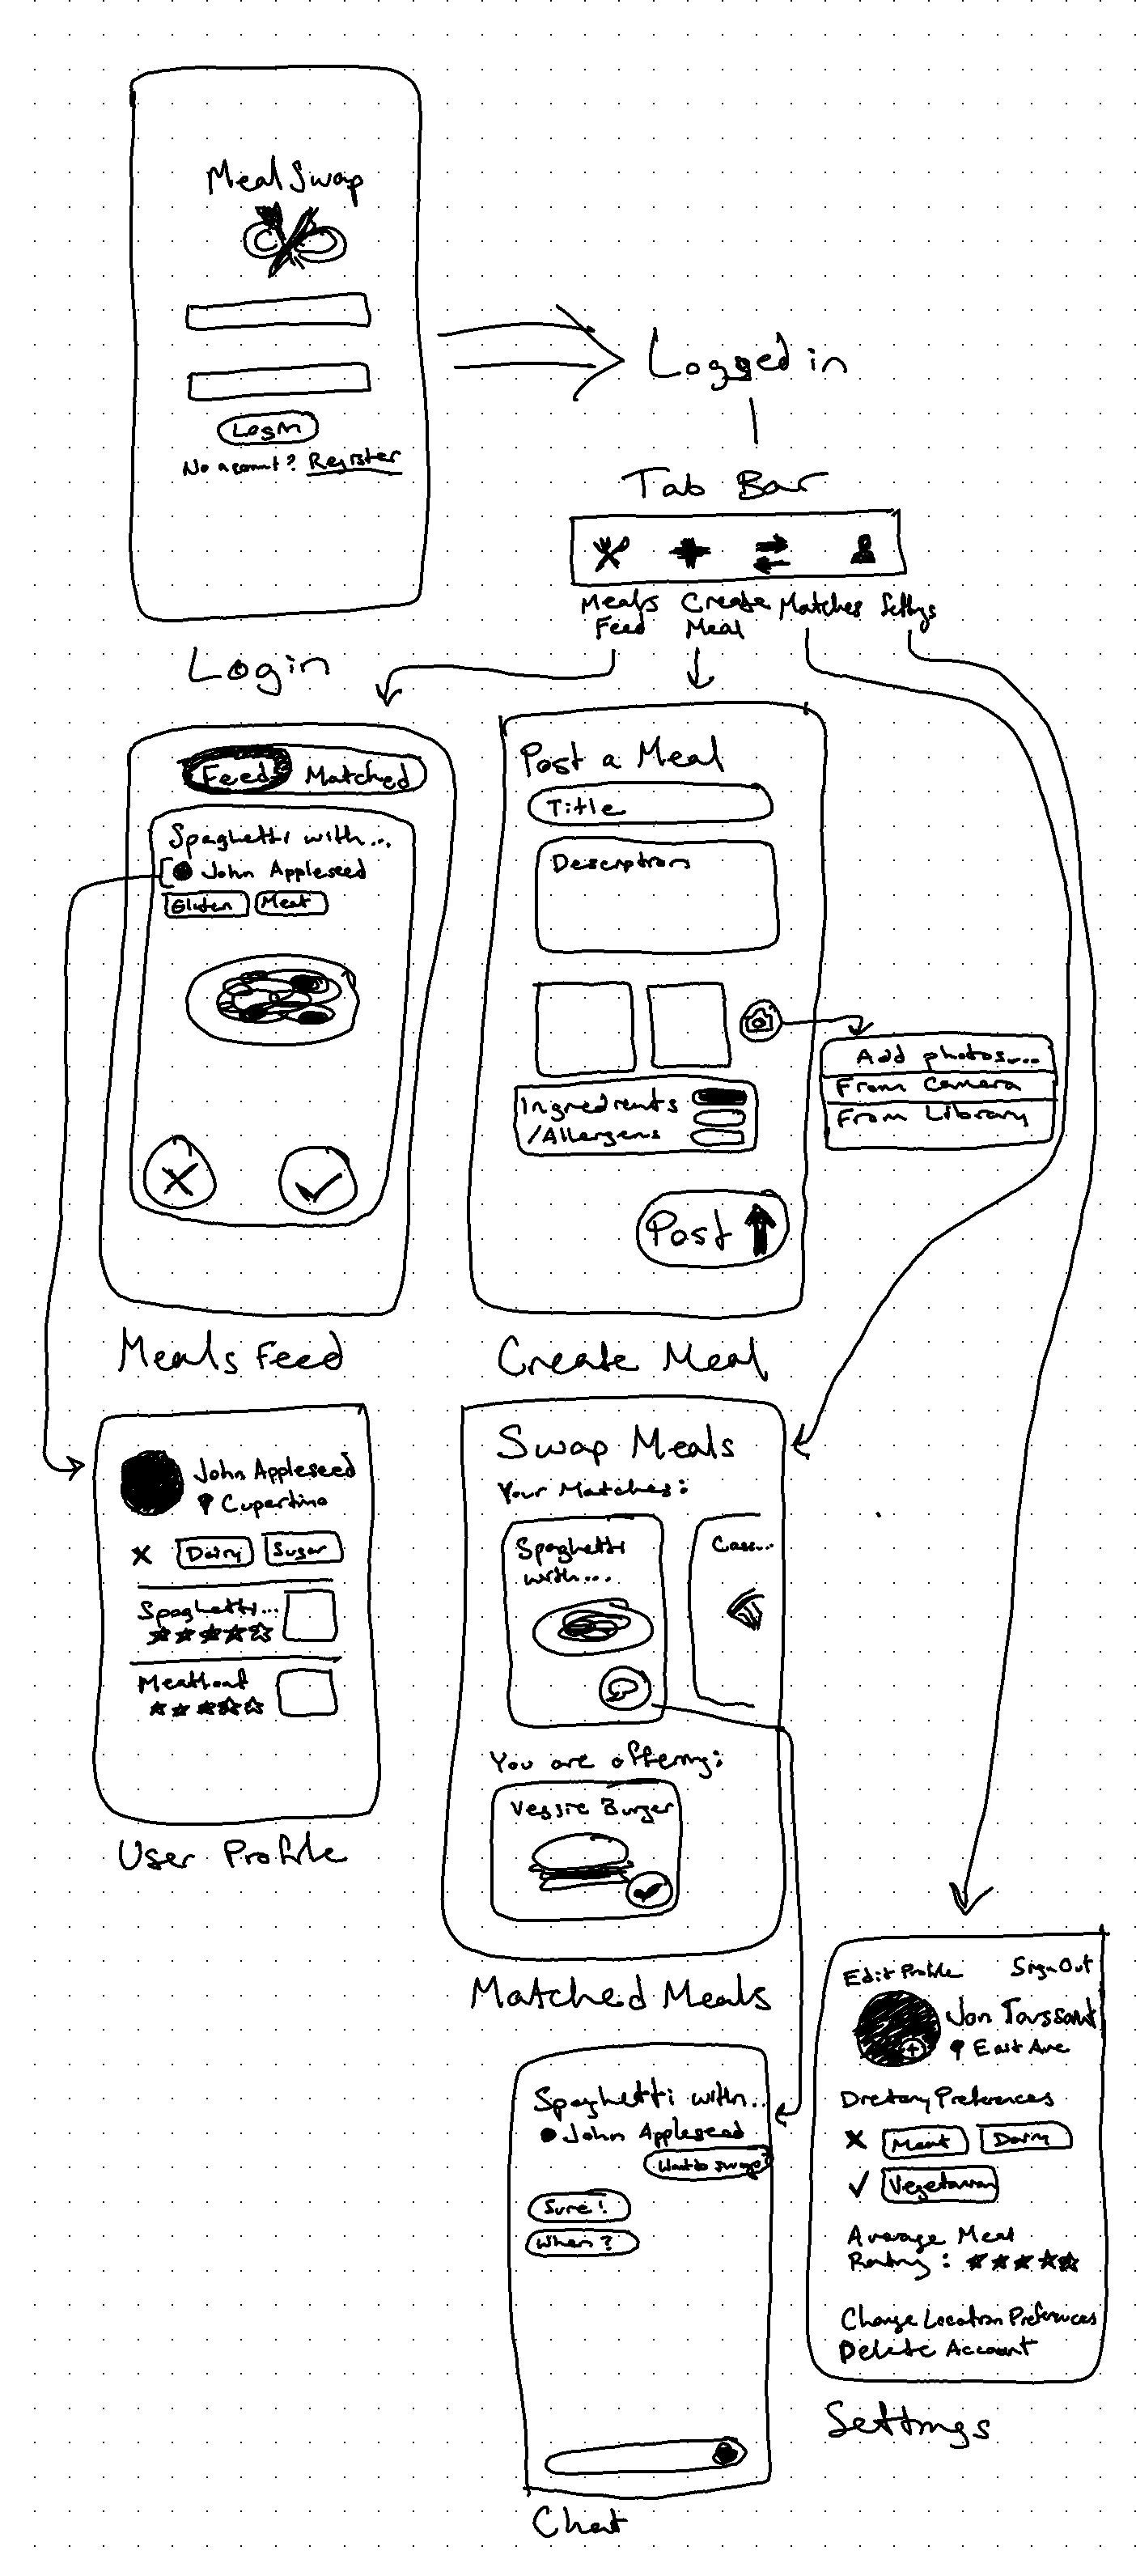 MealSwap
Login
No account? Register
Login
Logged in
Tab Bar
Meals Feed
Create Meal
Matches
Settings
Feed
Matched
Spaghetti with...
John Appleseed
Gluten
Meat
Meals Feed
Post a Meal
Title
Description
Ingredients
/Allergens
Post
Create Meal
Add photos....
From Camera
From Library
John Appleseed
Cupertino
Dairy
Sugar
Spaghetti...
Meatloaf
User Profile
Swap Meals
Your Matches:
Spaghetti
with...
Cass...
You are offering:
Veggie Burger
Matched Meals
Spaghetti with...
John Appleseed
Want to swap
Sure!
When?
Chat
Edit Profile
Sign Out
Jon Toussaint
East Ave
Dietary Preferences
Meat
Dairy
Vegetarian
Average Meal
Rating:
Change Location Preferences
Delete Account
Settings